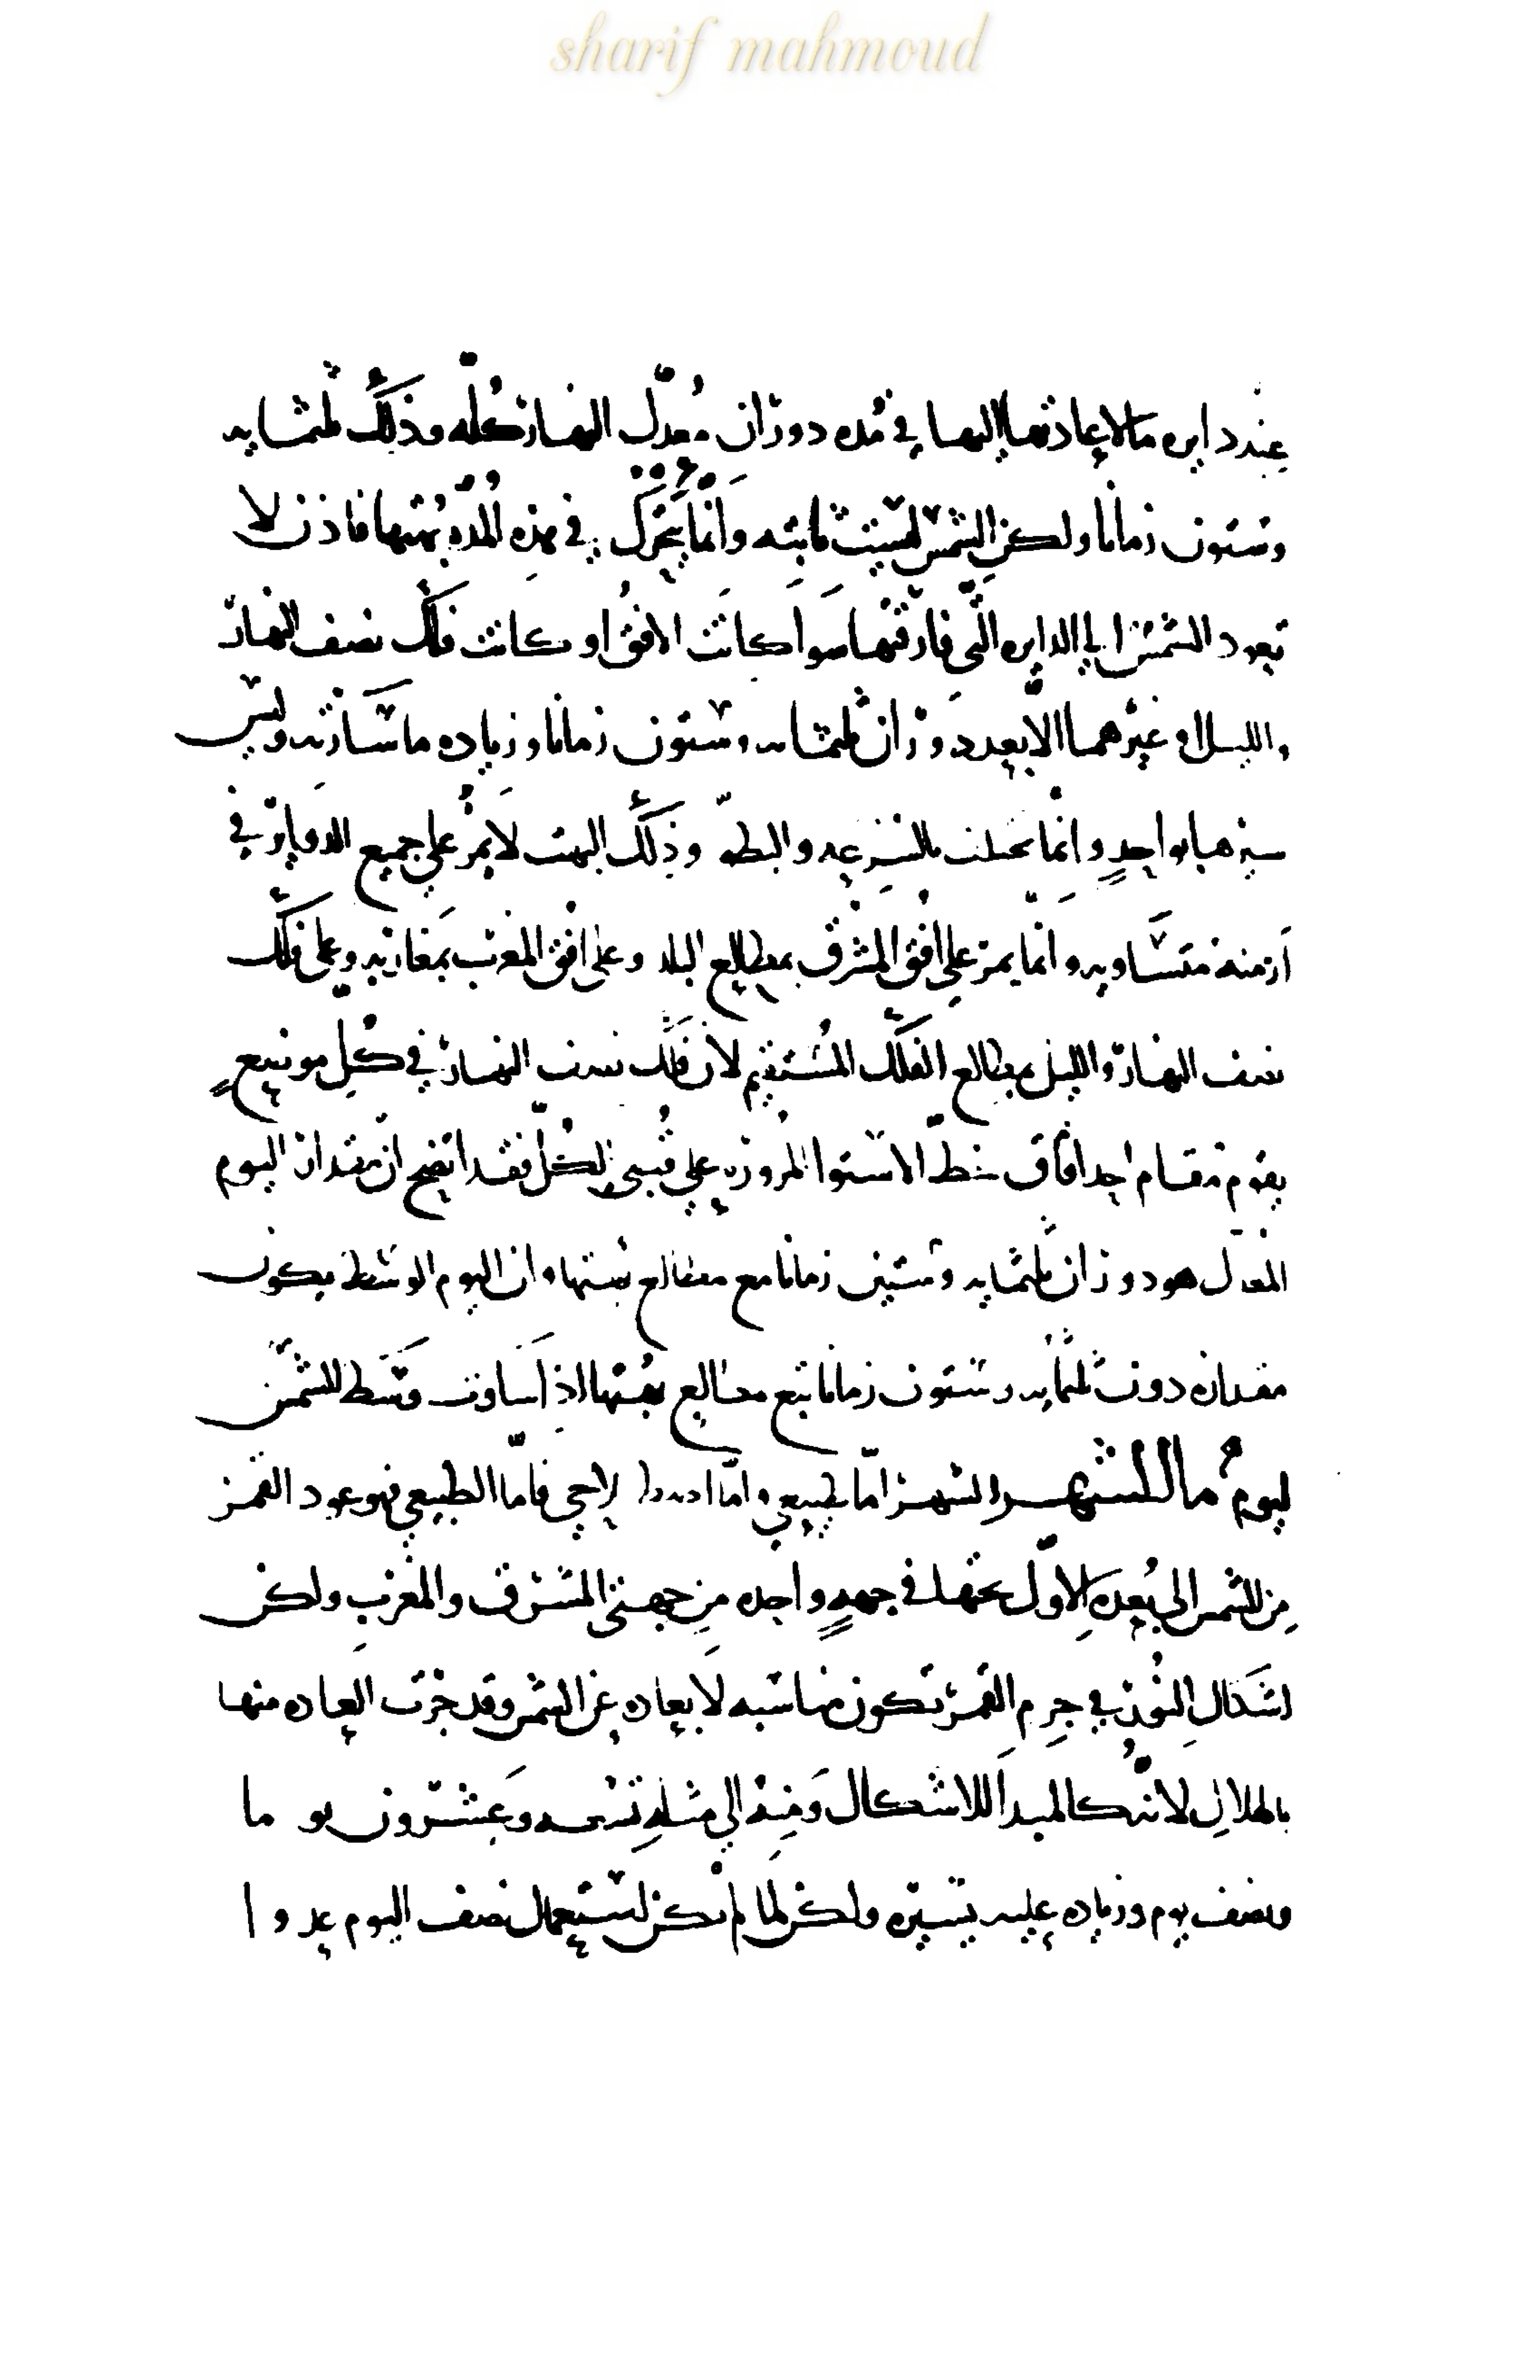 sharif mahmoud
عند دايره ما لاعادتها اليها في مده دوران معدل النهار كله وذلك ثلثمايه
وستون زمانا ولكن الشمس ليست ثابته وانما يتحرك في هذه المده بهتها فاذن لا
تعود الشمس الي الدايره التي فارقتها سوا كانت الافق او كانت فلك نصف النهار
والليل او غيرهما الا بعد دوران ثلثمايه وستون زمانا وزياده ما سارته وليس
سيرها بواحد وانما تختلف بالسرعه والبطء وذلك البهت لا يمر علي جميع الدواير في
ازمنه متساويه وانما يمر علي افق المشرق بمطالع البلد وعلي افق المغرب بمغاربه وعلي فلك
نصف النهار والليل بمطالع الفلك المستقيم لان فلك نصف النهار في كل موضع
يقوم مقام احد افاق خط الاستوا لمروره علي قطبي الكل فقد اتضح ان مقدار اليوم
المعدل هو دوران ثلثمايه وستين زمانا مع مطالع بهتها وان اليوم الوسط يكون
مقداره دون ثلثمايه وستون زمانا تبع مطالع بهتها اذا ساوت وسط الشمس
ليوم ما الشهر الشهر اما طبيعي واما اصطلاحي فاما الطبيعي فهو عود القمر
من الشمس الي بعده الاول عنها في جهه واحده من جهتي المشرق والمغرب ولكن
اشكال النور في جرم القمر تكون مناسبه لابعاده عن الشمس وقد جرت العاده منها
بالهلال لانه كالمبدا للاشكال ومنه الي مثله تسعه وعشرون يو ما
ونصف يوم وزياده عليه يسيره ولكن لما لم يكن لستعمال نصف اليوم عد وا